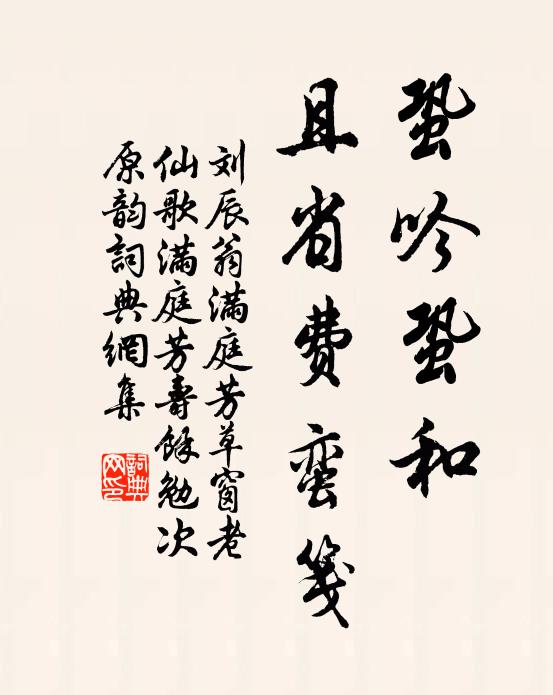 蛩吟蛩和
且省费蛮笺
刘辰翁满庭芳草窗老
仙歌满庭芳寿余勉次
原韵词典网集
词典网印